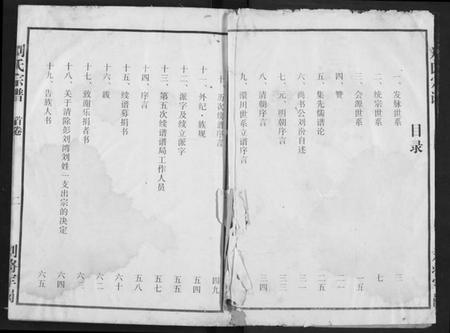 目录
一、发脉世系 三
二、统宗世系 七
三、会源世系 一五
四、赞 二一
五、集先儒谱论 二五
六、尚书公刘汾自述 三一
七、元、明朝序言 三三
八、清朝序言 三四
九、澴川世系立谱序言
十、历次续谱序言 四九
十一、外纪·族规 五四
十二、派字及续立派字 五五
十三、第五次续谱谱局工作人员 五七
十四、序言 五八
十五、续谱募捐书 六十
十六、跋 六二
十七、致谢乐捐者书 六三
十八、关于清除彭刘湾刘姓一支出宗的决定 六四
十九、告族人书 六五
刘氏宗谱 首卷 二